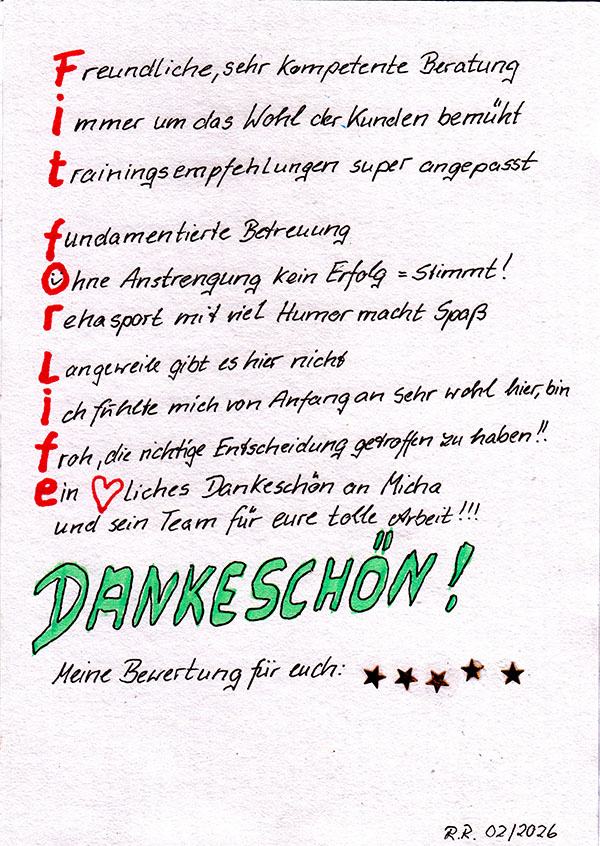 Freundliche, sehr kompetente Beratung
immer um das Wohl der Kunden bemüht
trainingsempfehlungen super angepasst
fundamentierte Betreuung
Ohne Anstrengung kein Erfolg = Stimmt!
rehasport mit viel Humor macht Spaß
Langeweile gibt es hier nicht
ich fühlte mich von Anfang an sehr wohl hier, bin
froh, die richtige Entscheidung getroffen zu haben!!
ein ♡liches Dankeschön an Micha
und sein Team für eure tolle Arbeit!!!
DANKESCHÖN!
Meine Bewertung für euch: ★★★★★
R.R. 02/2026